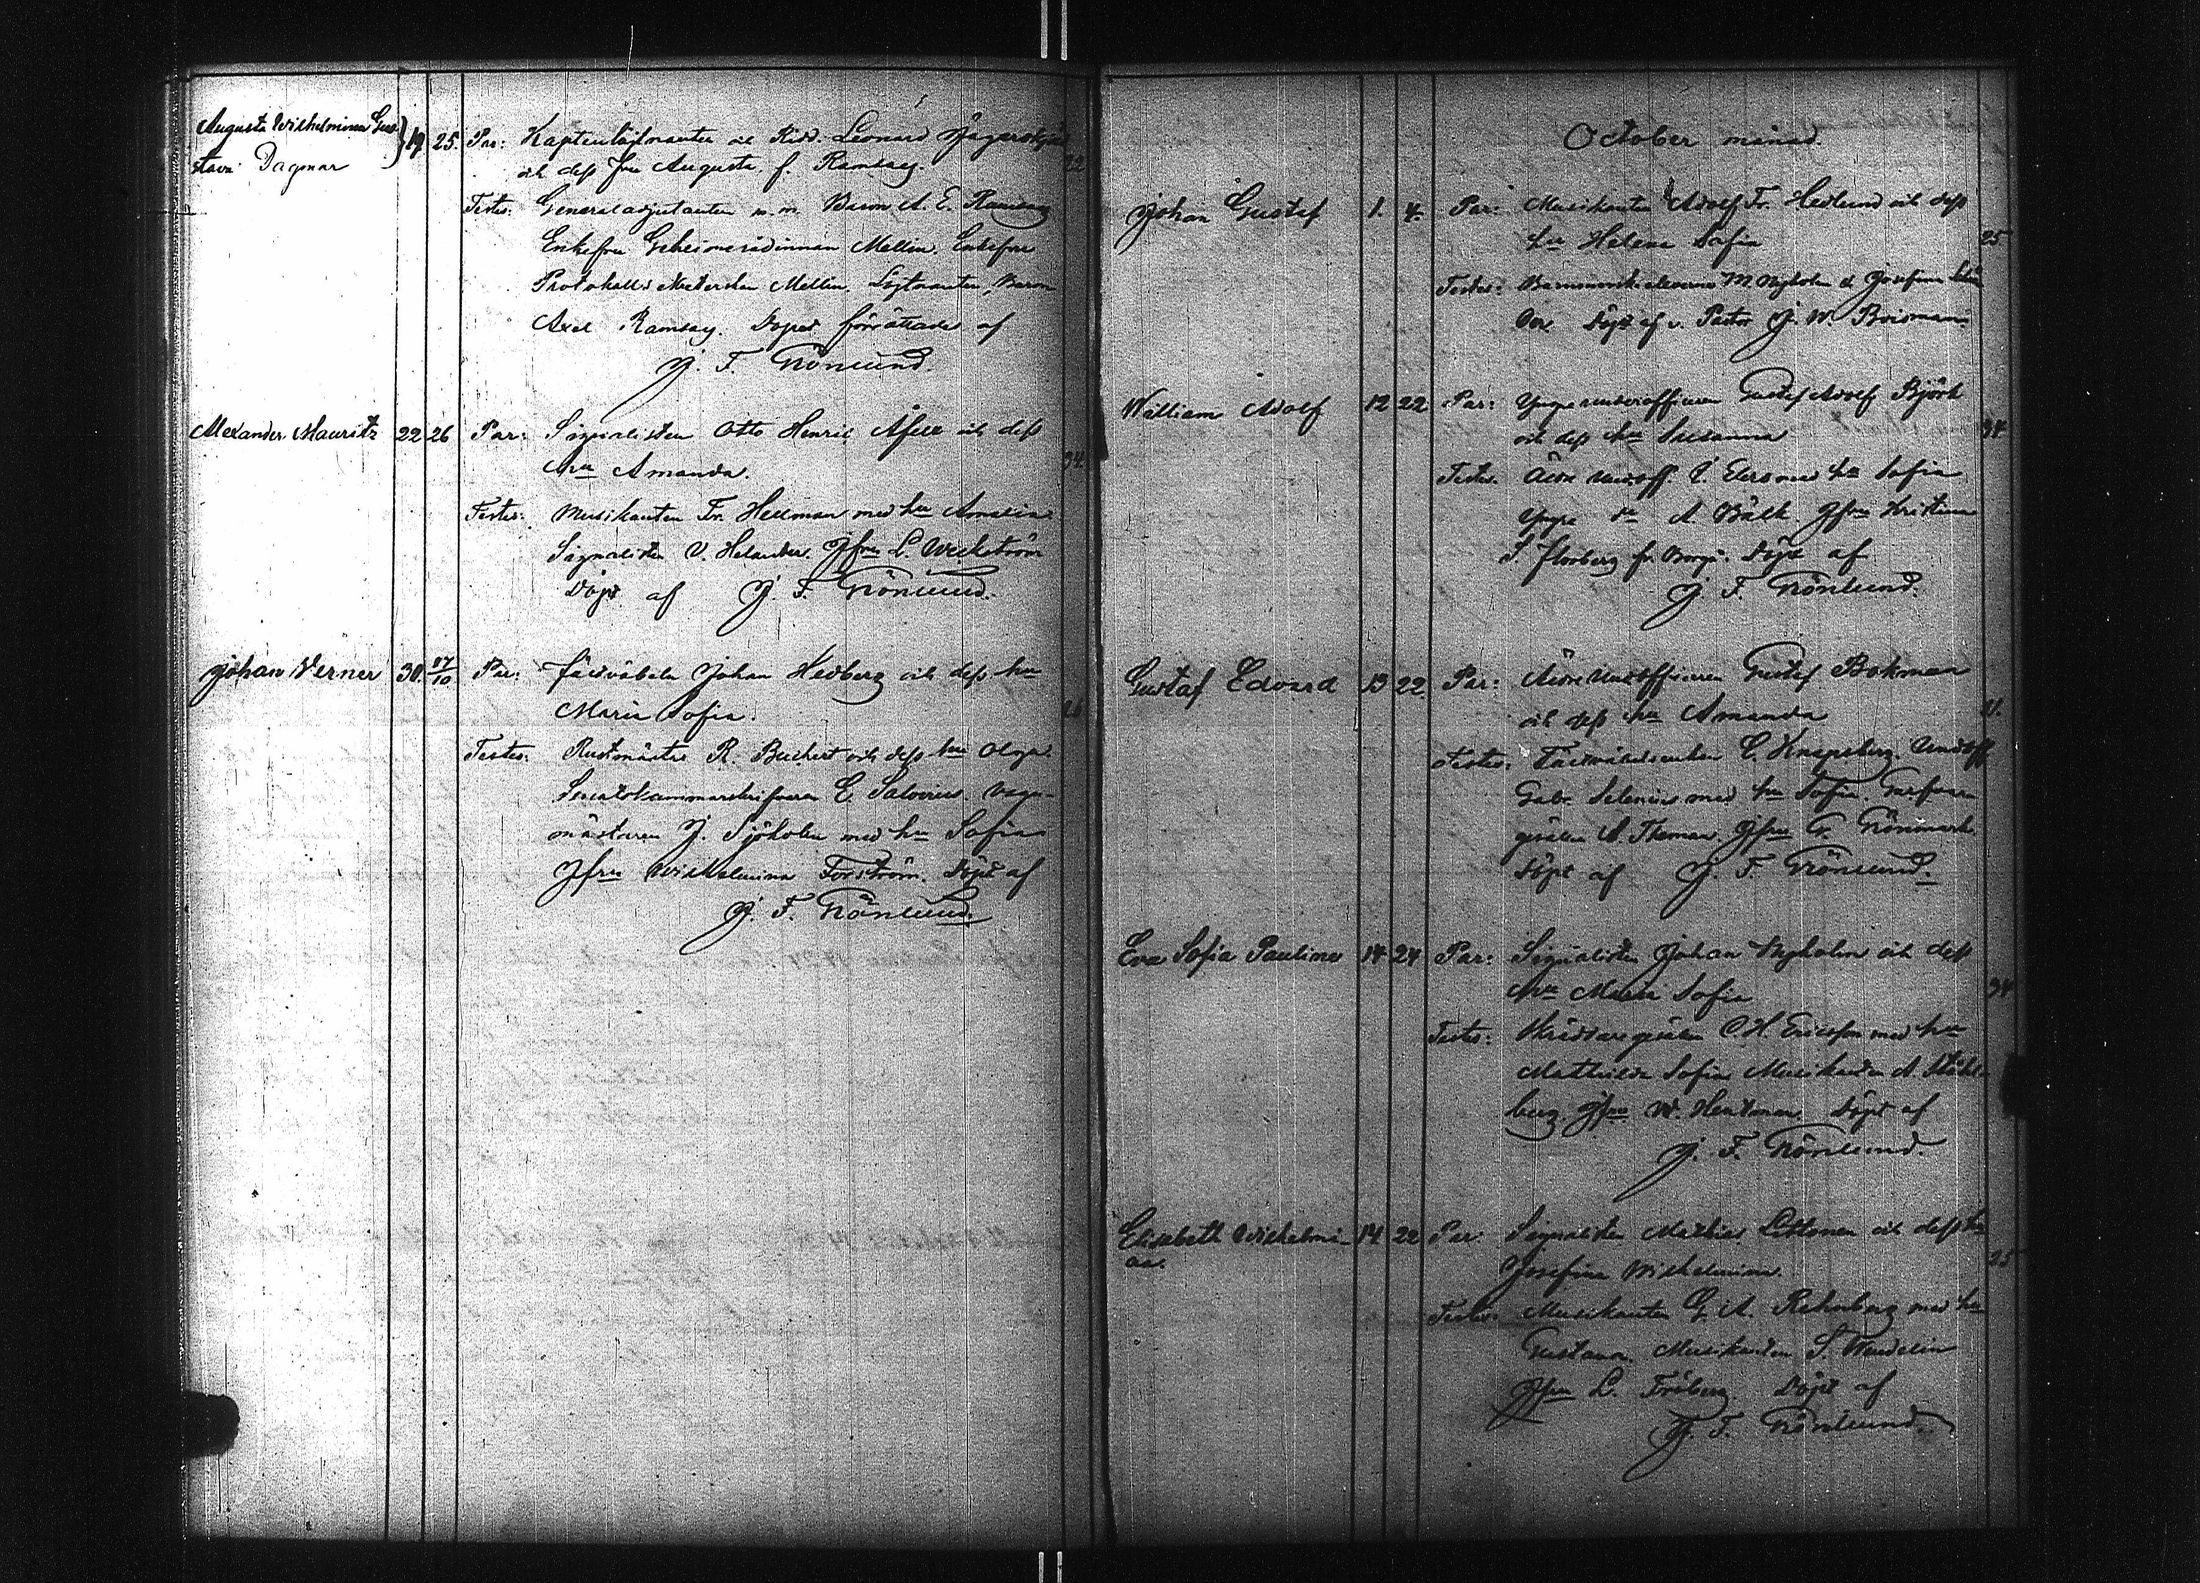 Augusta Wilhelmina Gus- 19 25. Par: Kaptenlöjtnanten och Ridd. Leonard
stava Dagmar och dess fru Augusta f. Ramsay. 22
Testes: Generaladjutanten m. m. Baron A. E. Ramsay
Enkefru Geheimerådinnan Mellin, Enkefru
Mellin, Löjtnanten, Baron
Axel Ramsay. Dopet förrättades af
J. F. Grönlund.
Alexander Mauritz 22 26 Par: Signalisten Otto Henric och dess
hu Amanda. 34
Testes: Musikanten Fr. Hellman med hu Amalia
Signalisten V. Helander. Jfru L. Weckström
Döpt af J. F. Grönlund.
Johan Verner 30. 17/10 Par: Fältväbeln Johan Hedberg och dess hu
Maria Sofia. 26
Testes: Rustmästar R. Buchert och dess hu Olga.
E. Salvenius. Vagn-
mästaren J. Sjöholm med hu Sofia
Jfru Wilhelmina Forström. Döpt af
J. F. Grönlund.
October månad.
Johan Gustaf 1. 4. Par: Musikanten Adolf Fr. Hedlund och dess
hu Helena Sofia 25
Testes: M. Nyholm & Josefina
Döpt af v. Pastor J. W. Boisman.
William Adolf 12 22 Par: Yngre underofficeren Gustaf Adolf Björk
och dess hu Susanna 34
Testes: Äldre undoff. med hu Sofia
Yngre do A. Bäck Jfru Kristina
S. fr. Borgå. Döpt af
J. F. Grönlund.
Gustaf Edvard 13 22 Par: Äldre Undofficeren Gustaf Bokman
och dess hu Amanda
Testes: C. Undoff
Gabr. Selenius med hu Sofia
gesällen A. Theman, Jfru G. Grönmark.
Döpt af J. F. Grönlund.
Eva Sofia Paulina 14 24 Par: Signalisten Johan Nyholm och dess
hu Maria Sofia 34
Testes: Skräddaregesällen C. H. Ericsson med hu
Mathilda Sofia Musikanten A. Ståhl-
berg Jfru W. Henkman. Döpt af
J. F. Grönlund.
Elisabeth Wilhelmi- 14 22 Par: Signalisten Mathias Littonen och dess hu
na. Josefina Wilhelmina. 25
Testes: Musikanten G. A. Rehnberg med hu
Gustava. Musikanten S. Wendelin
Jfru L. Friberg. Döpt af
J. F. Grönlund.